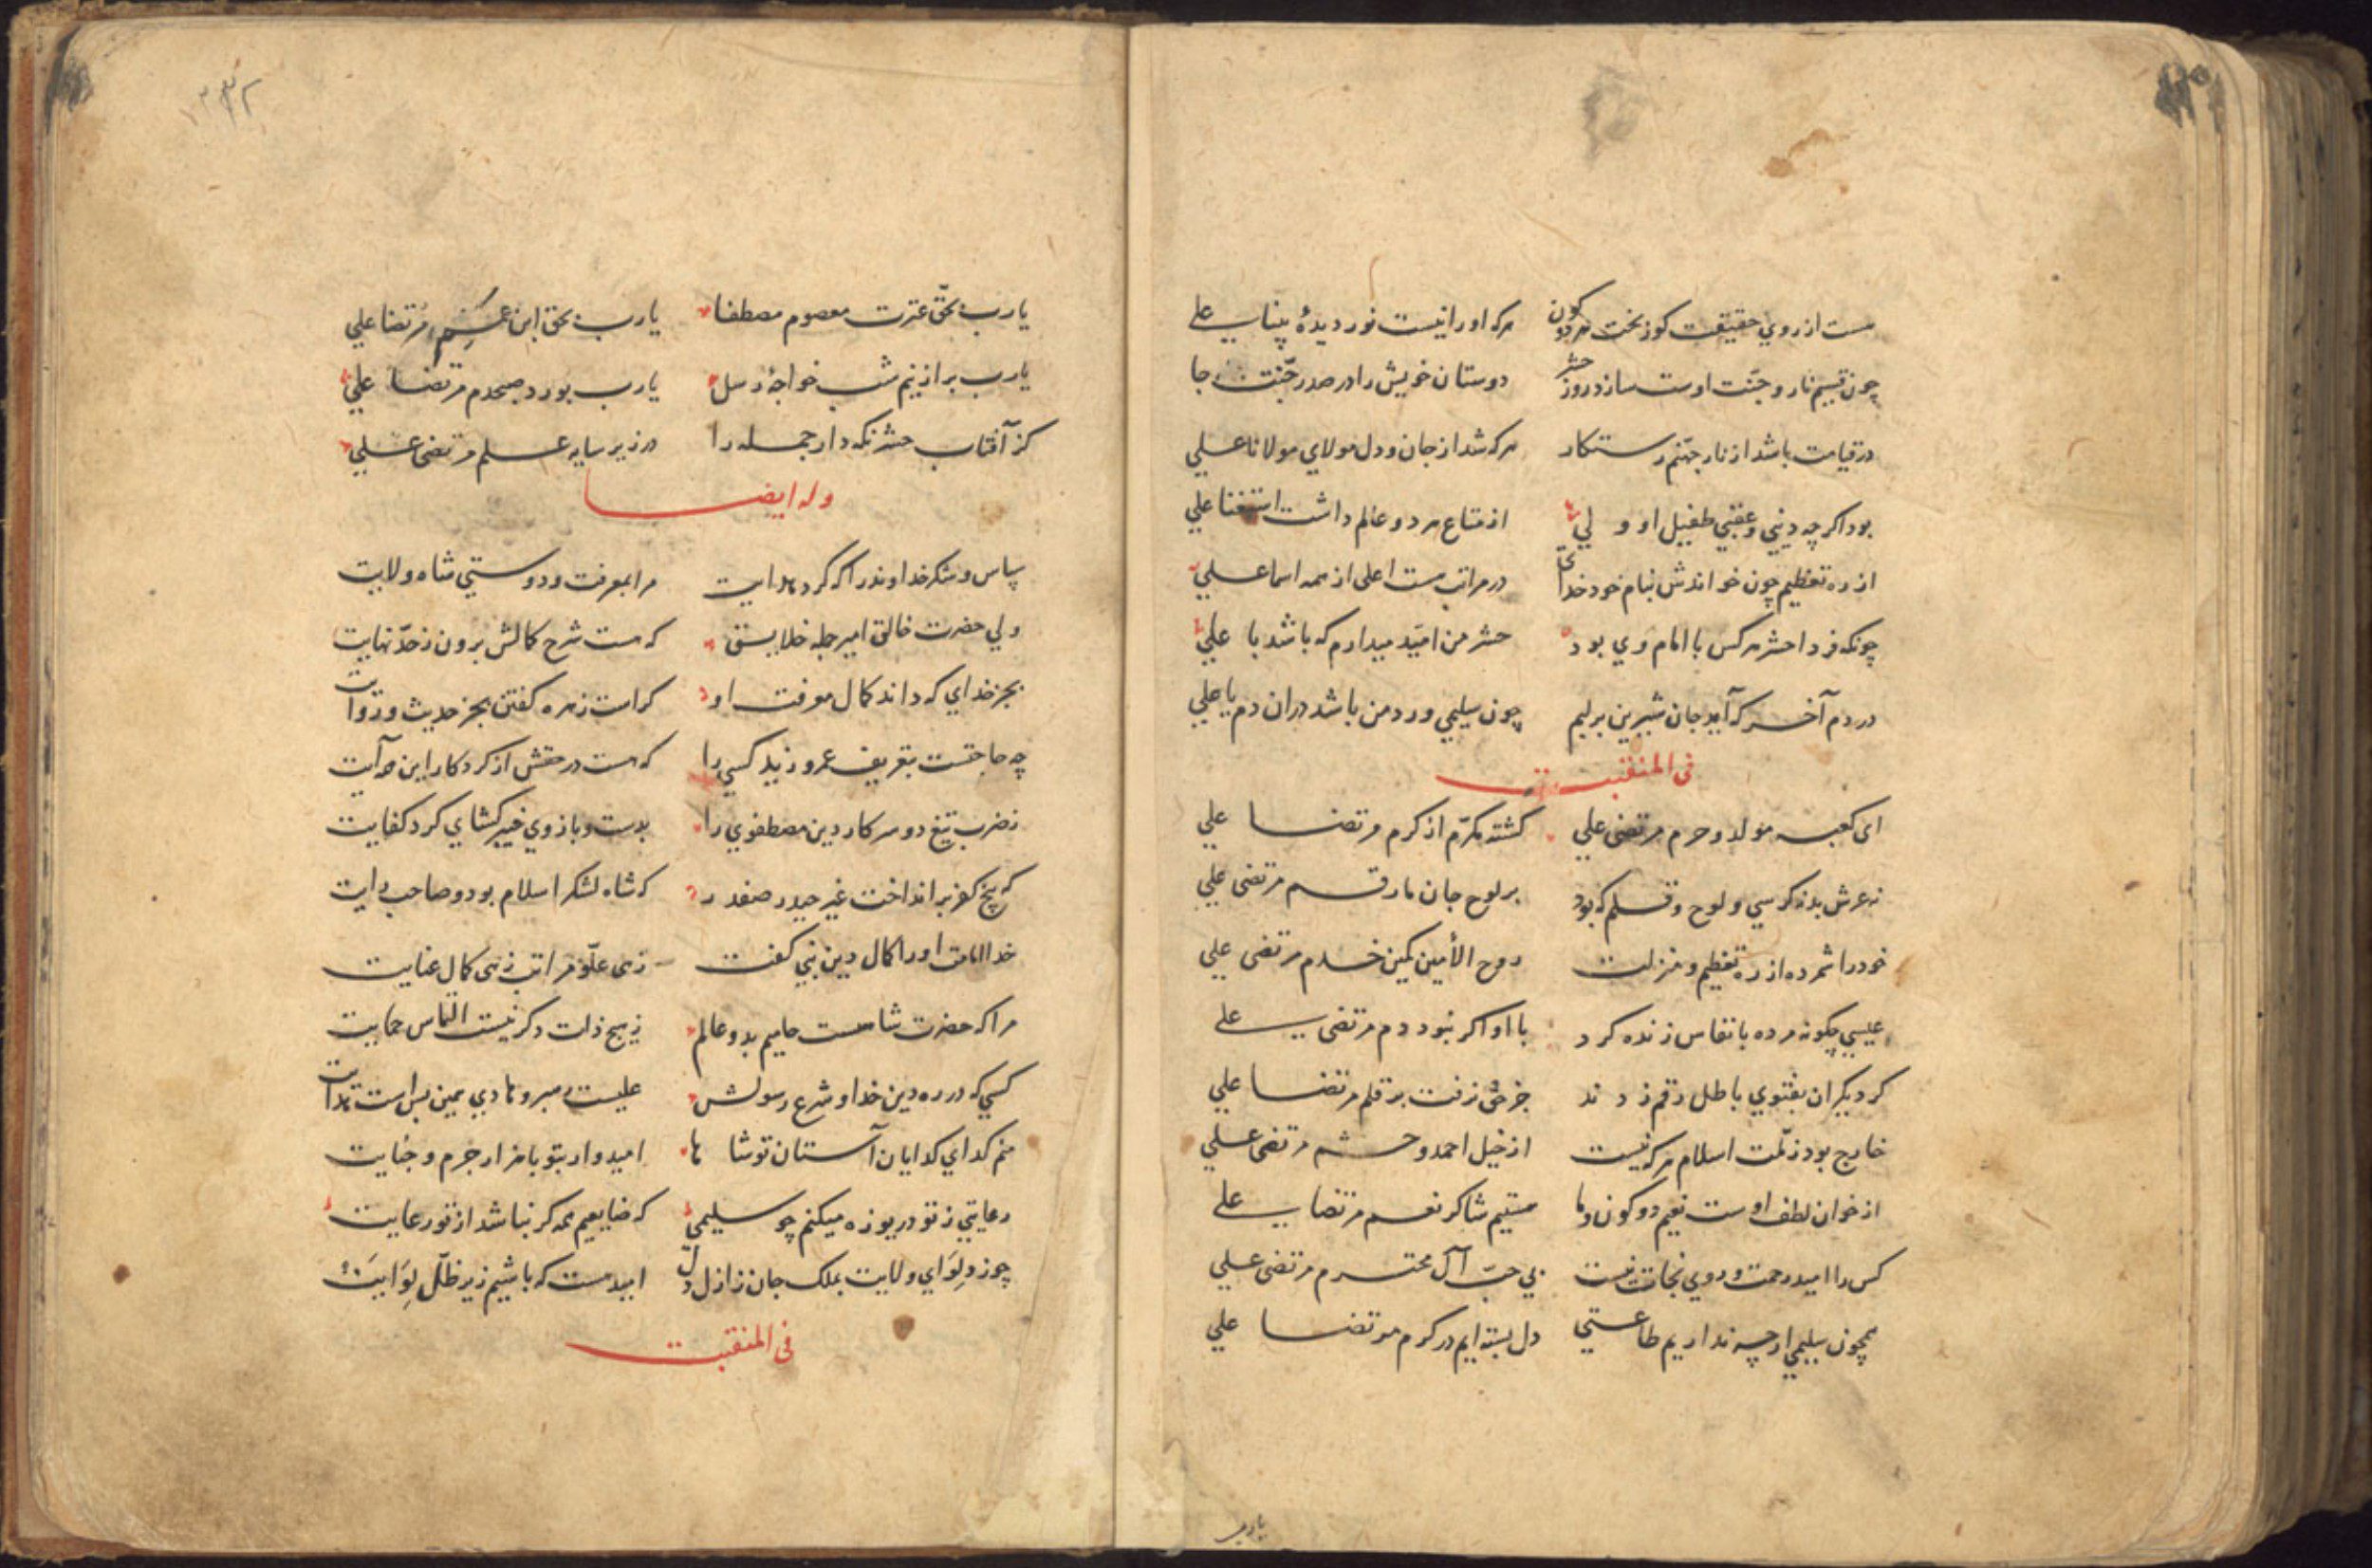 هست از روی حقیقت کوز بخت هر دو کون هرکه او را نیست نور دیدهٔ بینا علی
چون قسیم نار و جنّت اوست سازد روز حشر دوستان خویش را در صدر جنّت جا
در قیامت باشد از نار جهنّم رستکار هرکه شد از جان و دل مولای مولانا علی
بود اکرچه دنیی و عقبی طفیل او ولی از متاع هر دو عالم داشت استغنا علی
از ره تعظیم چون خواندش بنام خود خدای در مراتب هست اعلی از همه اسما علی
چونکه فردا حشر هرکس با امام وی بود حشر من امّید میدارم که باشد با علی
در دم آخر که آید جان شیرین بر لبم چون سلیمی ورد من باشد دران دم یا علی
فی المنقبت
ای کعبه مولد و حرم مرتضی علی کشته مکرّم از کرم مرتضا علی
نه عرش بد نه کرسی و لوح و قلم که بود بر لوح جان ما رقم مرتضی علی
خود را شمرده از ره تعظیم و منزلت روح الأمین کمین خدم مرتضی علی
عیسی چکونه مرده بانفاس زنده کرد با او اکر نبود دم مرتضی علی
کر دیکران بفتوی باطل رقم زدند جز حق نرفت بر قلم مرتضا علی
خارج بود ز ملّت اسلام هرکه نیست از خیل احمد و حشم مرتضی علی
از خوان لطف اوست نعیم دو کون و ما هستیم شاکر نعم مرتضا علی
کس را امید رحمت و روی نجات نیست بی حبّ آل محترم مرتضی علی
همچون سلیمی ارچه نداریم طاعتی دل بسته ایم در کرم مرتضا علی
یا رب
۱۳۳۲
یا رب بحقّ عترت معصوم مصطفا یا رب بحق ابن عم مرتضا علی
یا رب براز نیم شب خواجهٔ رسل یا رب بورد صبحدم مرتضا علی
کز آفتاب حشر نکه دار جمله را در زیر سایه علم مرتضی علی
وله ایضا
سپاس و شکر خداوند را که کرد هدایت مرا بمعرفت و دوستی شاه ولایت
ولی حضرت خالق امیر جمله خلایق که هست شرح کمالش برون ز حدّ نهایت
بجز خدای که داند کمال معرفت او کراست زهره کفتن بجز حدیث و روایت
چه حاجتست بتعریف عمرو و زید کسی را که هست در حقش از کردکار این همه آیت
ز ضرب تیغ دو سر کار دین مصطفوی را بدست و بازوی خیبر کشای کرد کفایت
که بیخ کفر برانداخت غیر حیدر صفدر که شاه لشکر اسلام بود و صاحب رایت
خدا امامت او را کمال دین نبی کفت زهی علّو مراتب زهی کمال عنایت
مرا که حضرت شاهست حامیم بدو عالم ز هیچ ذات دکر نیست التماس حمایت
کسی که در ره دین خدا و شرع رسولش علیست رهبر و هادی همین بس است هدایت
منم کدای کدایان آستان تو شاها امیدوار بتو با هزار جرم و جنایت
رعایتی ز تو دریوزه میکنم چو سلیمی که ضایعیم همه کر نباشد از تو رعایت
چو زد لوای ولایت بملک جان ز ازل دل امید هست که باشیم زیر ظلّ لوایت
فی المنقبت